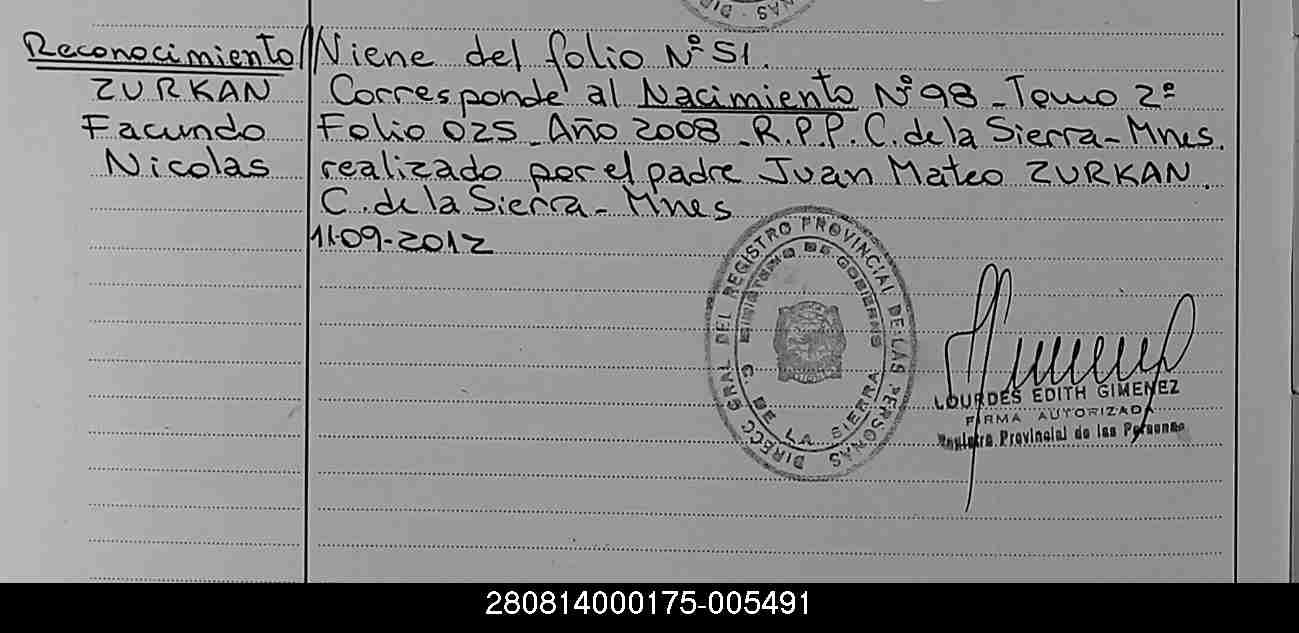 NAS - DIR
SVN
Reconocimiento
ZURKAN
Facundo
Nicolas
Viene del folio Nº 51.
Corresponde al Nacimiento Nº 98 - Tomo 2º
Folio 025 - Año 2008 - R.P.P. C. de la Sierra - Mnes.
realizado por el padre Juan Mateo ZURKAN.
C. de la Sierra - Mnes
11-09-2012
DIRECC GRAL DEL REGISTRO PROVINCIAL DE LAS PERSONAS
MINISTERIO DE GOBIERNO
C. DE LA SIERRA
LOURDES EDITH GIMENEZ
FIRMA AUTORIZADA
Registro Provincial de las Personas
280814000175-005491